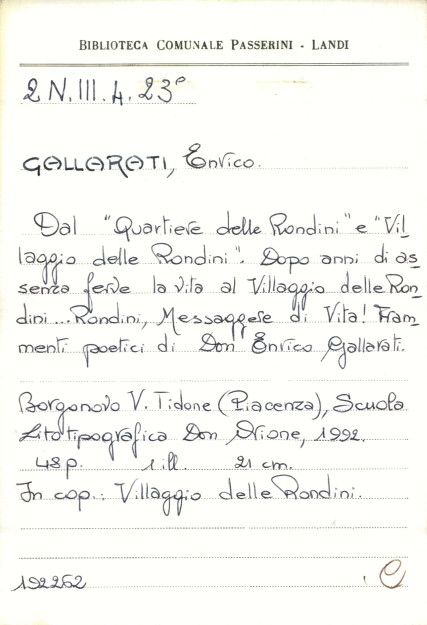 BIBLIOTECA COMUNALE PASSERINI - LANDI
2 N.III.4.23°
GALLARATI, Enrico.
Dal "Quartiere delle Rondini" e "Vil_
laggio delle Rondini". Dopo anni di as_
senza ferve la vita al Villaggio delle Ron_
dini... Rondini, Messaggere di Vita! Fram_
menti poetici di Don Enrico Gallarati.
Borgonovo V. Tidone (Piacenza), Scuola
Litotipografica Don Orione, 1992.
48 p. 1 ill. 21 cm.
In cop.: Villaggio delle Rondini.
192262
C